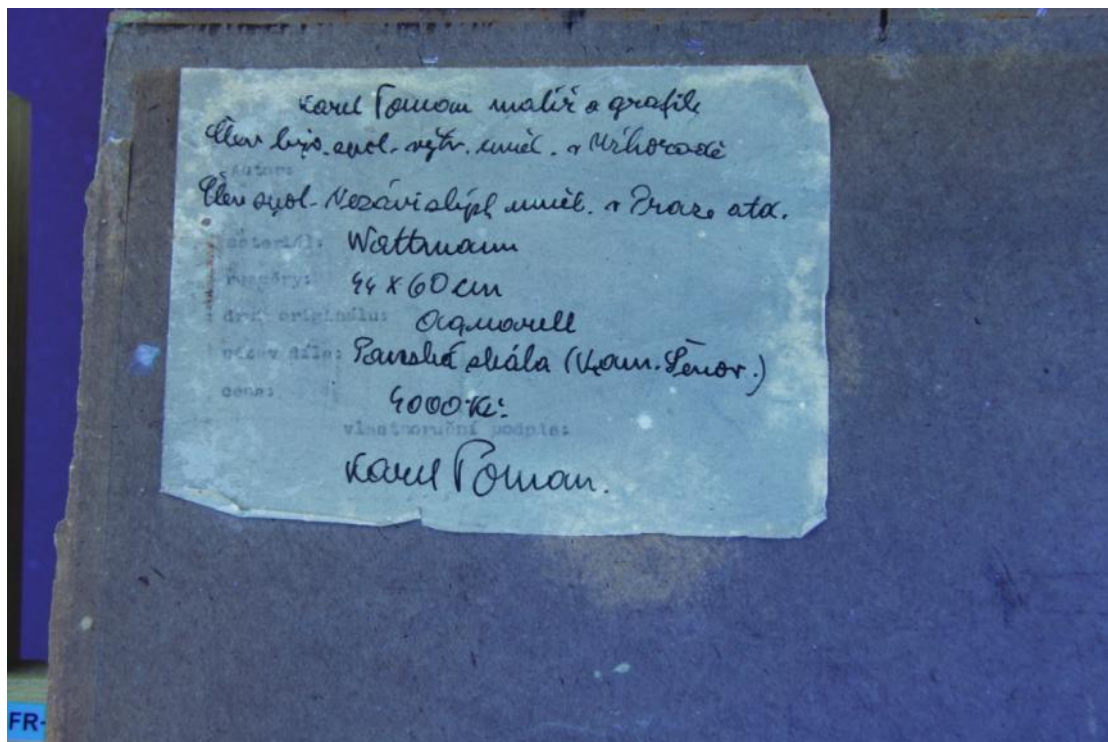 Karel Toman malíř a grafik
Člen býv. spol. výtv. uměl. v Užhorodě
Autor:
Člen spol. Nezávislých uměl. v Praze atd.
materiál: Wattmann
rozměry: 44 x 60 cm
druh originálu: Aqmarell
název díla: Panská skála (Kam. Šenov.)
cena: 4000 Kč.
vlastnoruční podpis:
Karel Toman.
FR-